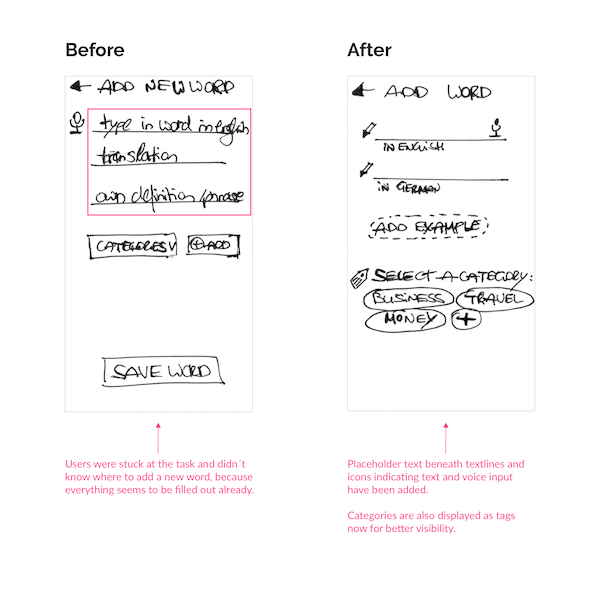 Before
ADD NEW WORD
type in word in english
translation
own definition/phrase
CATEGORIES V
+ ADD
SAVE WORD
Users were stuck at the task and didn´t
know where to add a new word, because
everything seems to be filled out already.
After
ADD WORD
IN ENGLISH
IN GERMAN
ADD EXAMPLE
SELECT A CATEGORY:
BUSINESS TRAVEL
MONEY +
Placeholder text beneath textlines and
icons indicating text and voice input
have been added.
Categories are also displayed as tags
now for better visibility.